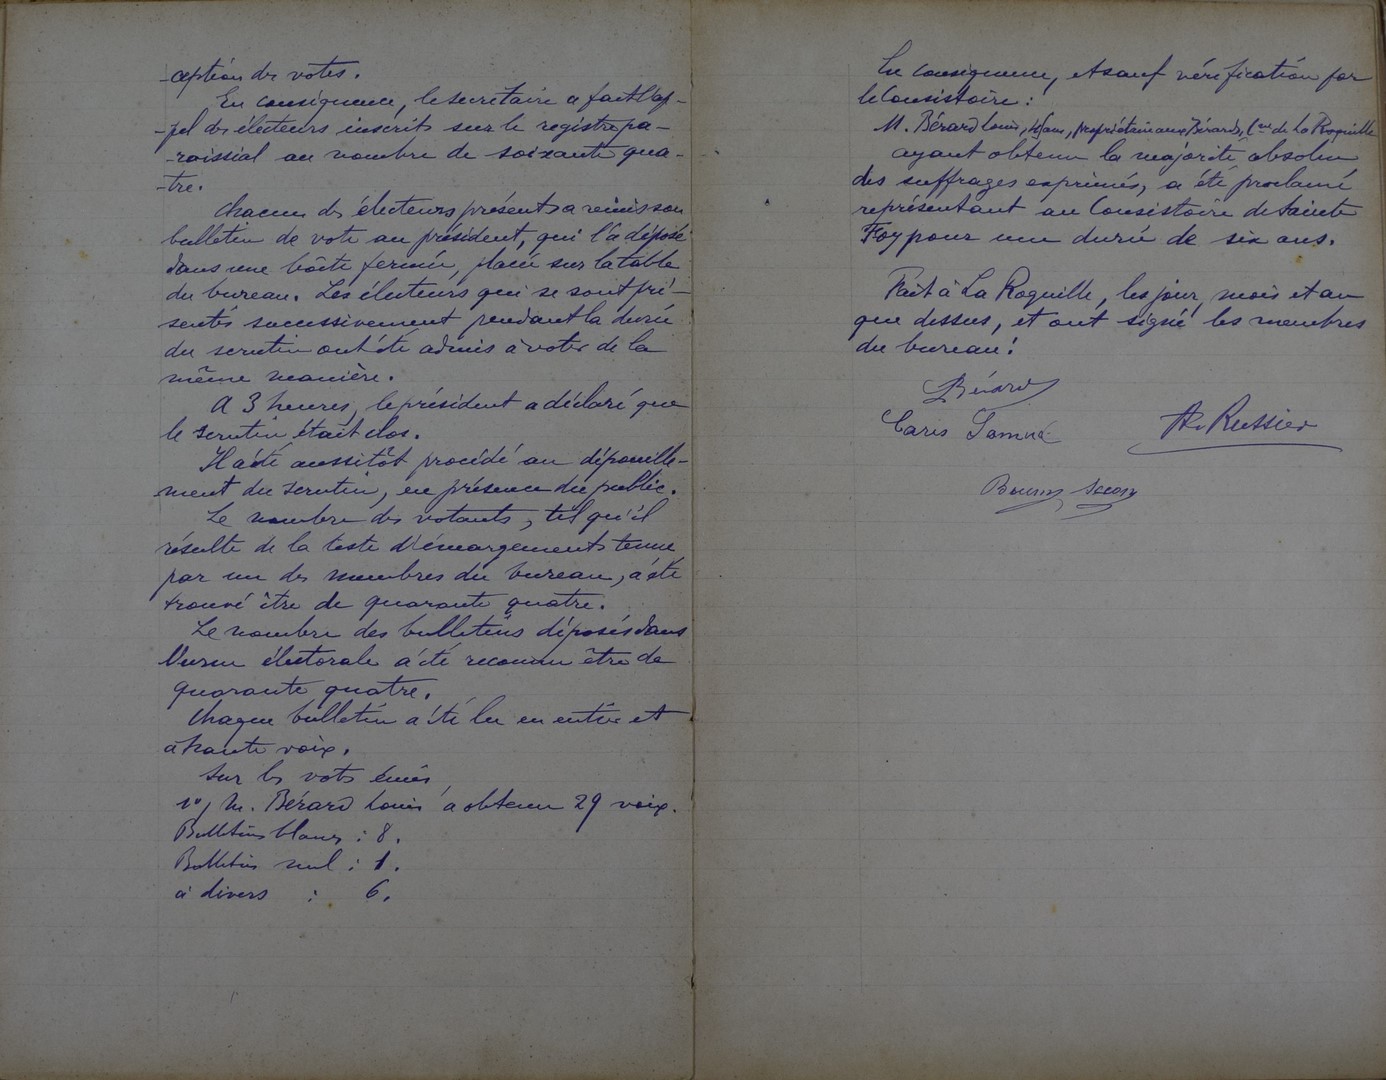 -ception des votes.
En conséquence, le secrétaire a fait l'ap-
-pel des électeurs inscrits sur le registre pa-
-roissial au nombre de soixante qua-
-tre.
Chacun des électeurs présents a remis son
bulletin de vote au président, qui l'a déposé
dans une boîte fermée, placée sur la table
du bureau. Les électeurs qui se sont pré-
sentés successivement pendant la durée
du scrutin ont été admis à voter de la
même manière.
A 3 heures, le président a déclaré que
le scrutin était clos.
Il a été aussitôt procédé au dépouille-
ment du scrutin, en présence du public.
Le nombre des votants, tel qu'il
résulte de la liste d'émargements tenue
par un des membres du bureau, a été
trouvé être de quarante quatre.
Le nombre des bulletins déposés dans
l'urne électorale a été reconnu être de
quarante quatre.
Chaque bulletin a été lu en entier et
à haute voix.
Sur les votes émis
1º/ M. Bérard Louis a obtenu 29 voix.
Bulletins blancs : 8.
Bulletins nul : 1.
à divers : 6.
En conséquence, et sauf vérification par
le Consistoire :
M. Bérard Louis, propriétaire aux Bérards, Cne de La Roquille
ayant obtenu la majorité absolue
des suffrages exprimés, a été proclamé
représentant au Consistoire de Sainte
Foy pour une durée de six ans.
Fait à La Roquille, les jour, mois et an
que dessus, et ont signé les membres
du bureau :
LBérard
Caris Samuel
Ad. Russier